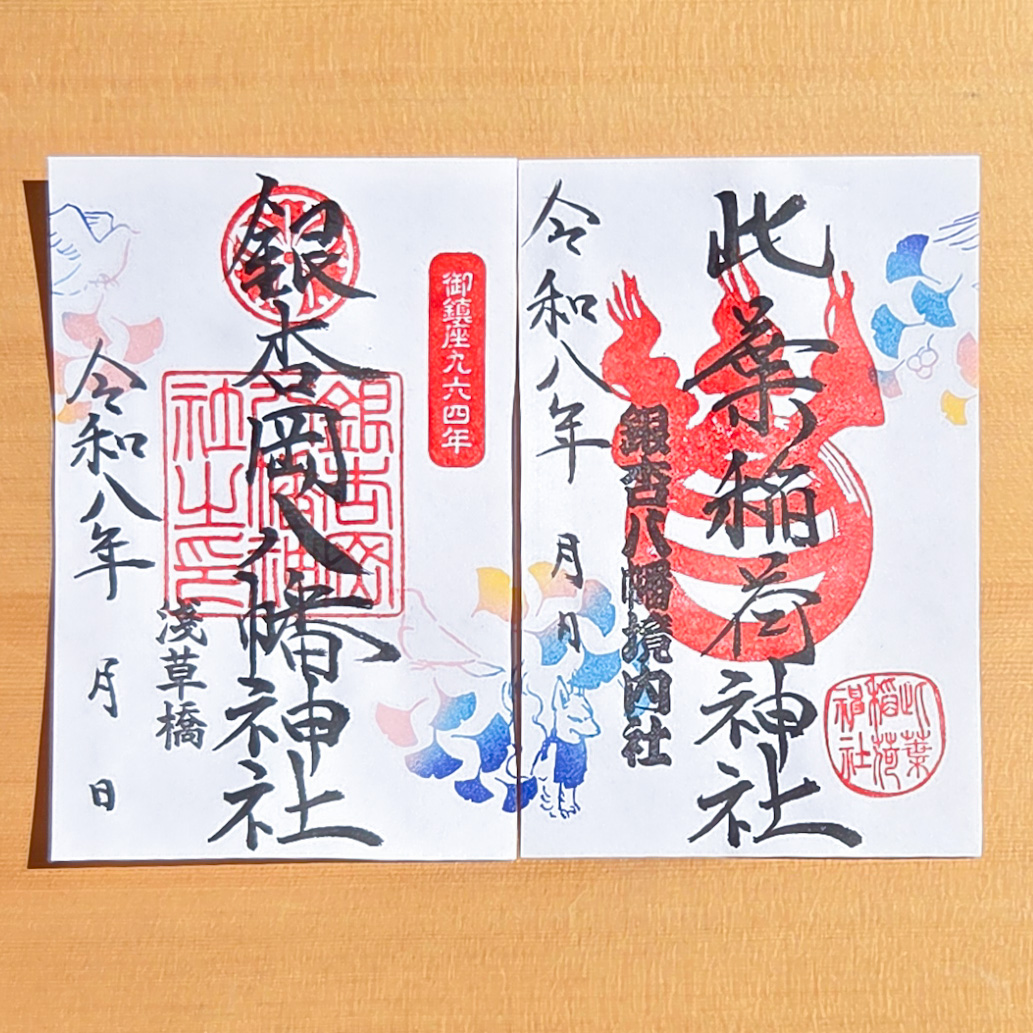 此葉稲荷神社
此葉
稲荷
神社
銀杏八幡境内社
令和八年 月 日
御鎮座九六四年
銀杏岡八幡神社
銀杏岡
八幡神
社之印
浅草橋
令和八年 月 日